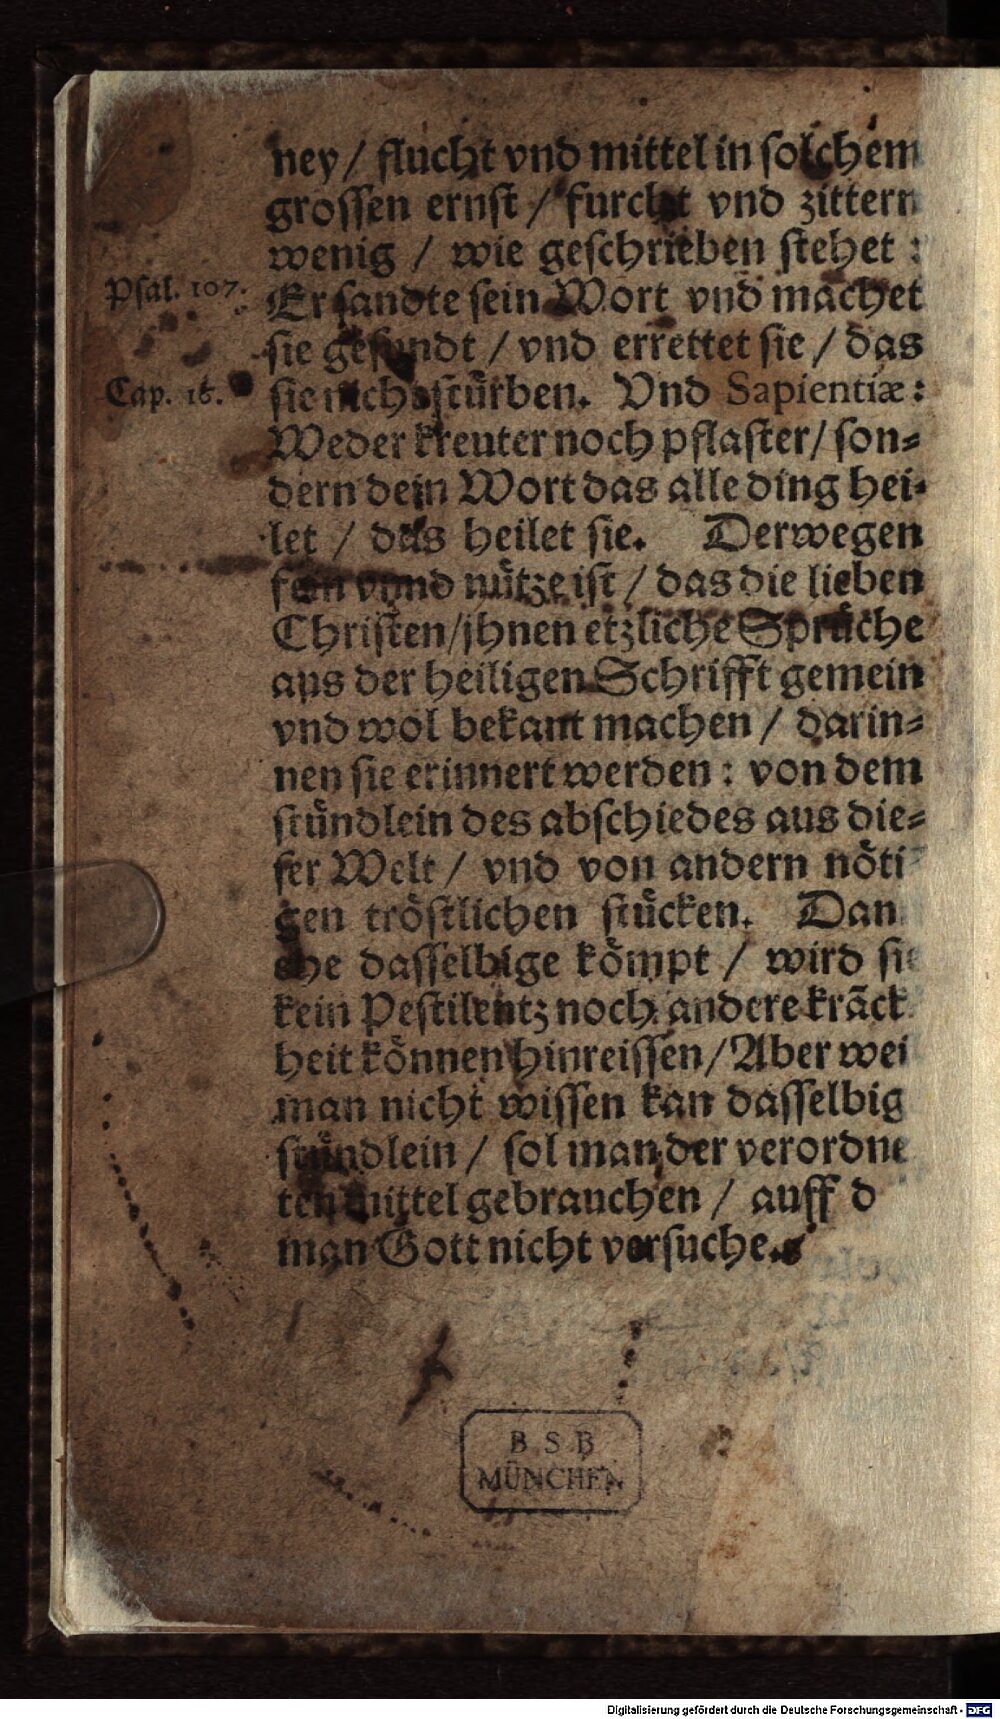 ney / flucht vnd mittel in solchem
grossen ernst / furcht vnd zittern
wenig / wie geschrieben stehet :
Psal. 107.
Er sandte sein Wort vnd machet
sie gesundt / vnd errettet sie / das
Cap. 16.
sie nicht stürben. Vnd Sapientiæ:
Weder kreuter noch pflaster / son=
dern dein Wort das alle ding hei=
let / das heilet sie. Derwegen
fein vnnd nütze ist / das die lieben
Christen / jhnen etzliche Sprüche
aus der heiligen Schrifft gemein
vnd wol bekant machen / darin=
nen sie erinnert werden : von dem
stündlein des abschiedes aus die=
ser Welt / vnd von andern nöti=
gen tröstlichen stücken. Dan
ehe dasselbige kömpt / wird sie
kein Pestilentz noch andere kräck
heit können hinreissen / Aber wei
man nicht wissen kan dasselbig
stündlein / sol man der verordne
ten mittel gebrauchen / auff d
man Gott nicht versuche.
B S B
MÜNCHEN
Digitalisierung gefördert durch die Deutsche Forschungsgemeinschaft - DFG